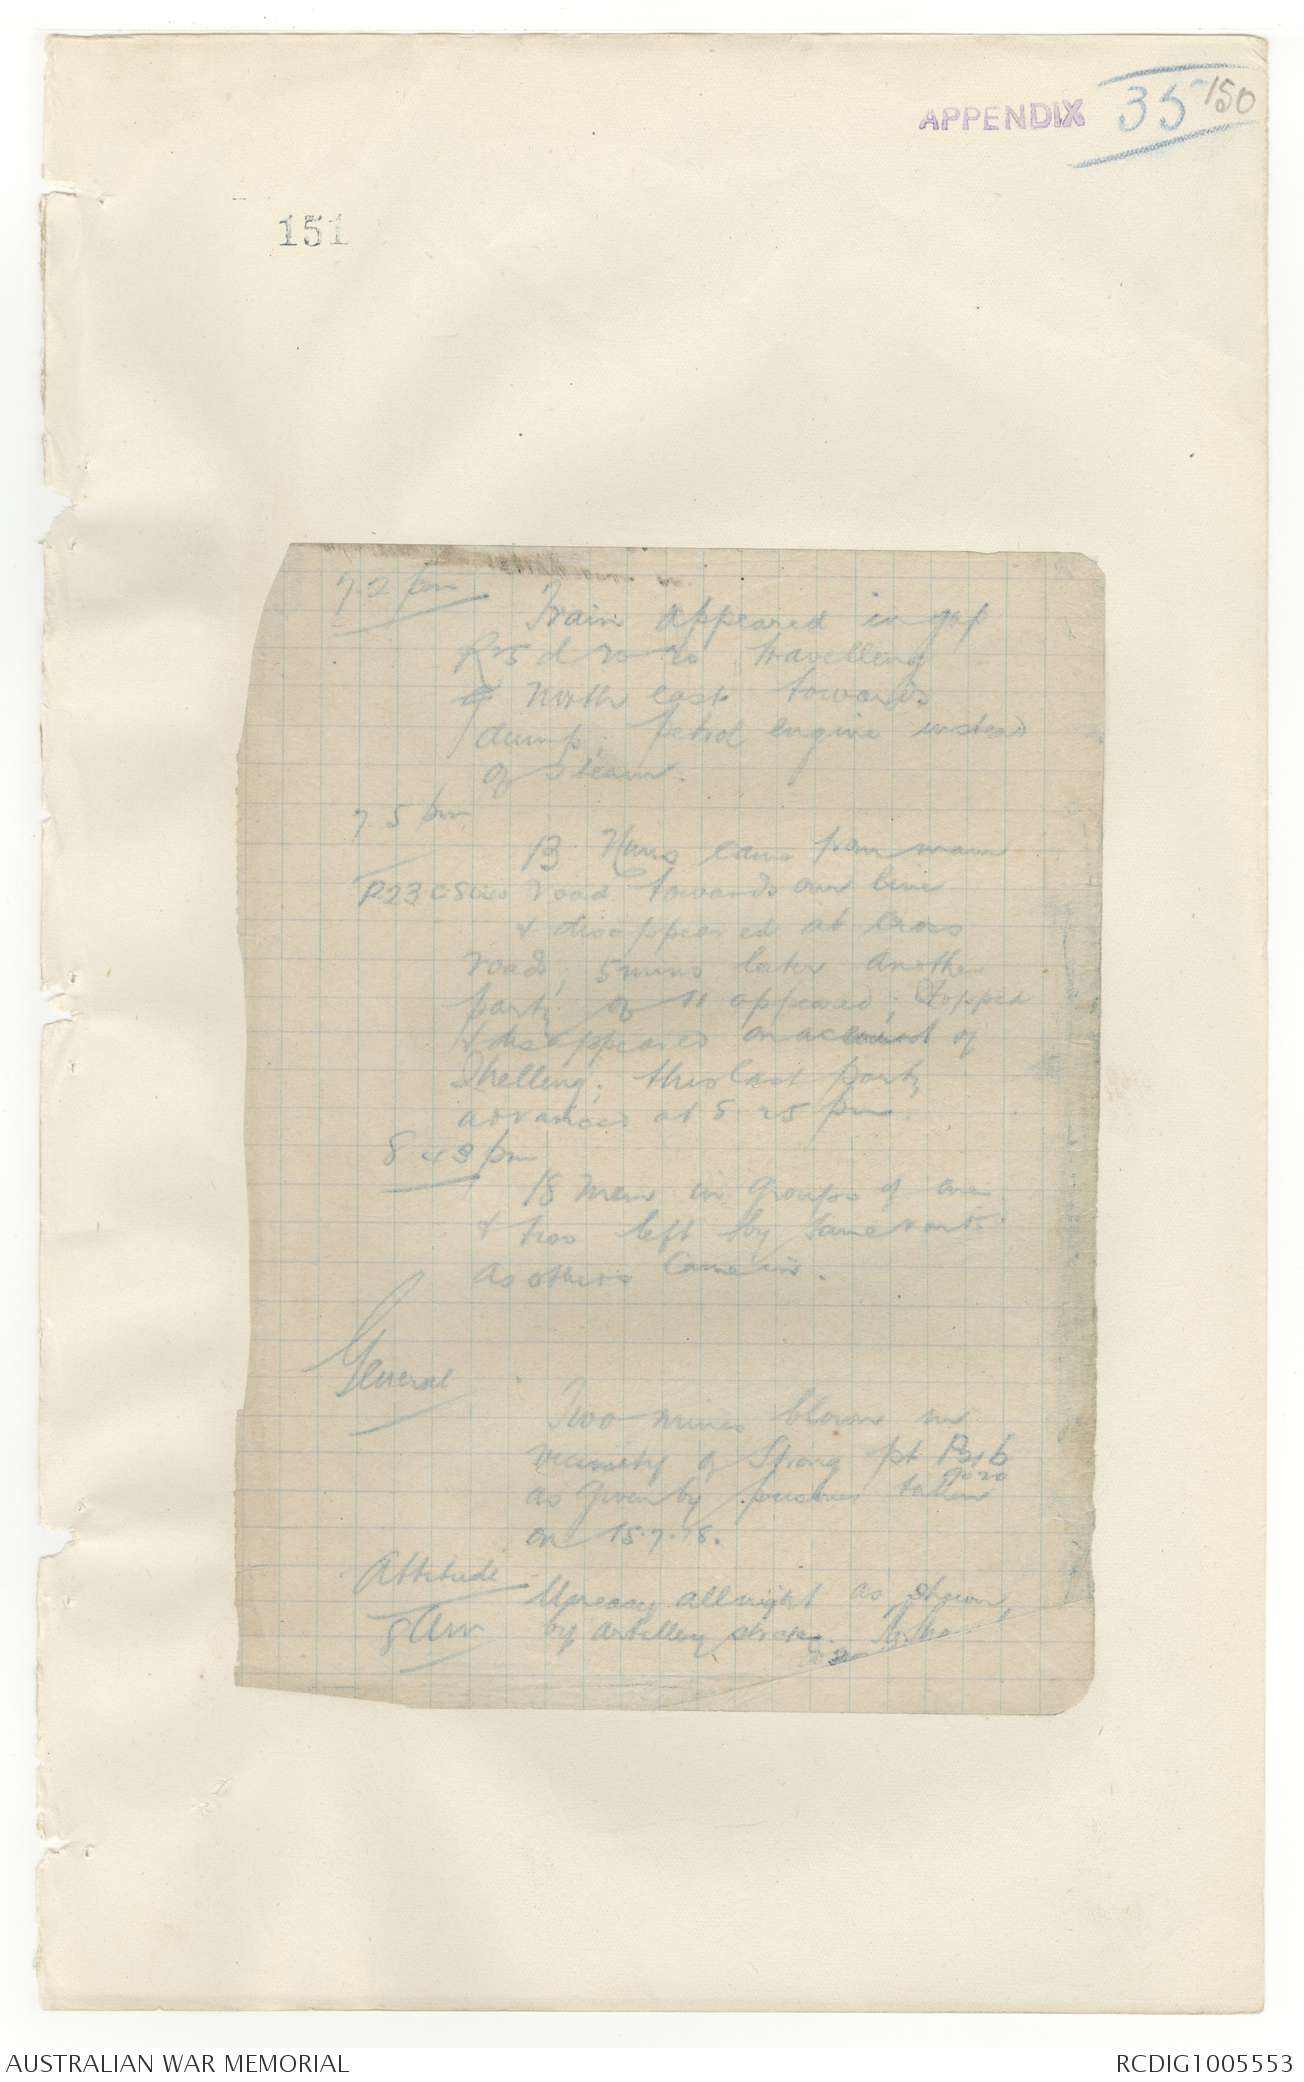 APPENDIX 35 150
151
7.2 pm
Train appeared in gap
R25 d 20 20 travelling
North east towards
dump; petrol engine instead
of steam.
7 5 pm
13 Huns came from main
P23 c 80.20 road towards our line
& disappeared at cross
roads, 5 mins later another
party of 11 appeared; stopped
& disappeared on account of
Shelling; this last party
advanced at 8.25 pm.
8 43 pm
18 men in groups of one
& two left by same route
as others came in.
General
Two mines blown in
vicinity of Strong pt
90 20
as given by prisoner taken
on 15.7.18.
Attitude
Uneasy all night as shown
8 Am by artillery
AUSTRALIAN WAR MEMORIAL
RCDIG1005553